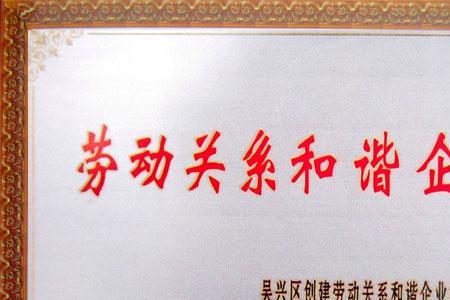 劳动关系和谐企
吴兴区创建劳动关系和谐企业